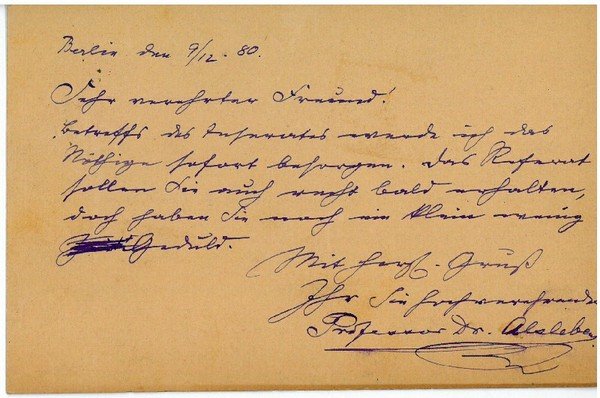 Berlin den 9/12. 80.
Sehr verehrter Freund!
Betreffs des Inserates werde ich das
Nöthige sofort besorgen. Das Referat
sollen Sie auch recht bald erhalten,
doch haben Sie noch ein klein wenig
Geduld.
Mit herzl. Gruß
Ihr Sie hochverehrender
Professor Dr. Alsleben